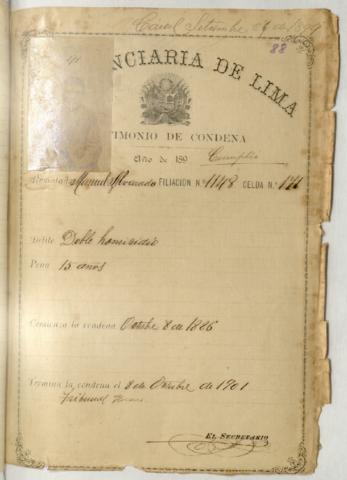 88
NCIARIA DE LIMA
TIMONIO DE CONDENA
Año de 189 Cumplió
Manuel Alvarado FILIACION N.º 1148 CELDA N.º 121
Delito Doble homicidio
Pena 15 años
Comienza la condena Octubre 8 de 1886
Termina la condena el 8 de Octubre de 1901
Tribunal
EL SECRETARIO